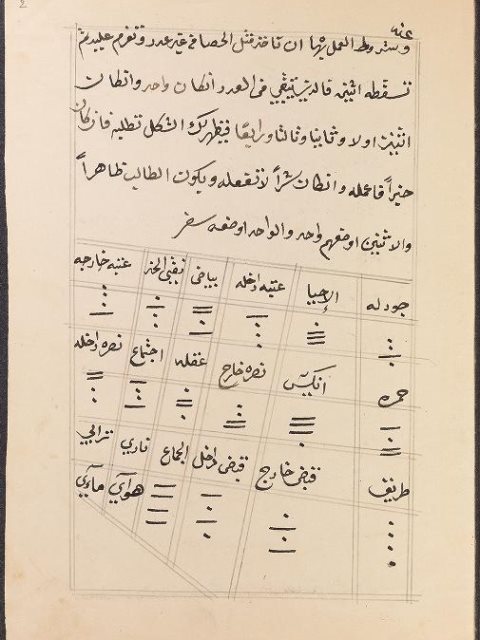 عنه
وشروط العمل بها ان تاخذ مثل الحصا في غير عدد وتعزم عليه ثم
تسقطه اثنين فالذي يتبقي في العدد انكان واحد وانكان
اثنين اولا وثانيا وثالثا ورابعا فيظهر لك الشكل تطلبه فان كان
خيرا فاعمله وانكان شرا لا تفعله ويكون الطالب ظاهرا
والاثنين اوضعهم واحد والواحد اوضعه صفر
جودله الاحيا عتبه داخله بياض نقي الخد عتبه خارجه
حمره انكيس نصره خارج عقله اجتماع نصره داخله
طريق قبض خارج قبض داخل الجماع ناري ترابي
هوآي مآءي